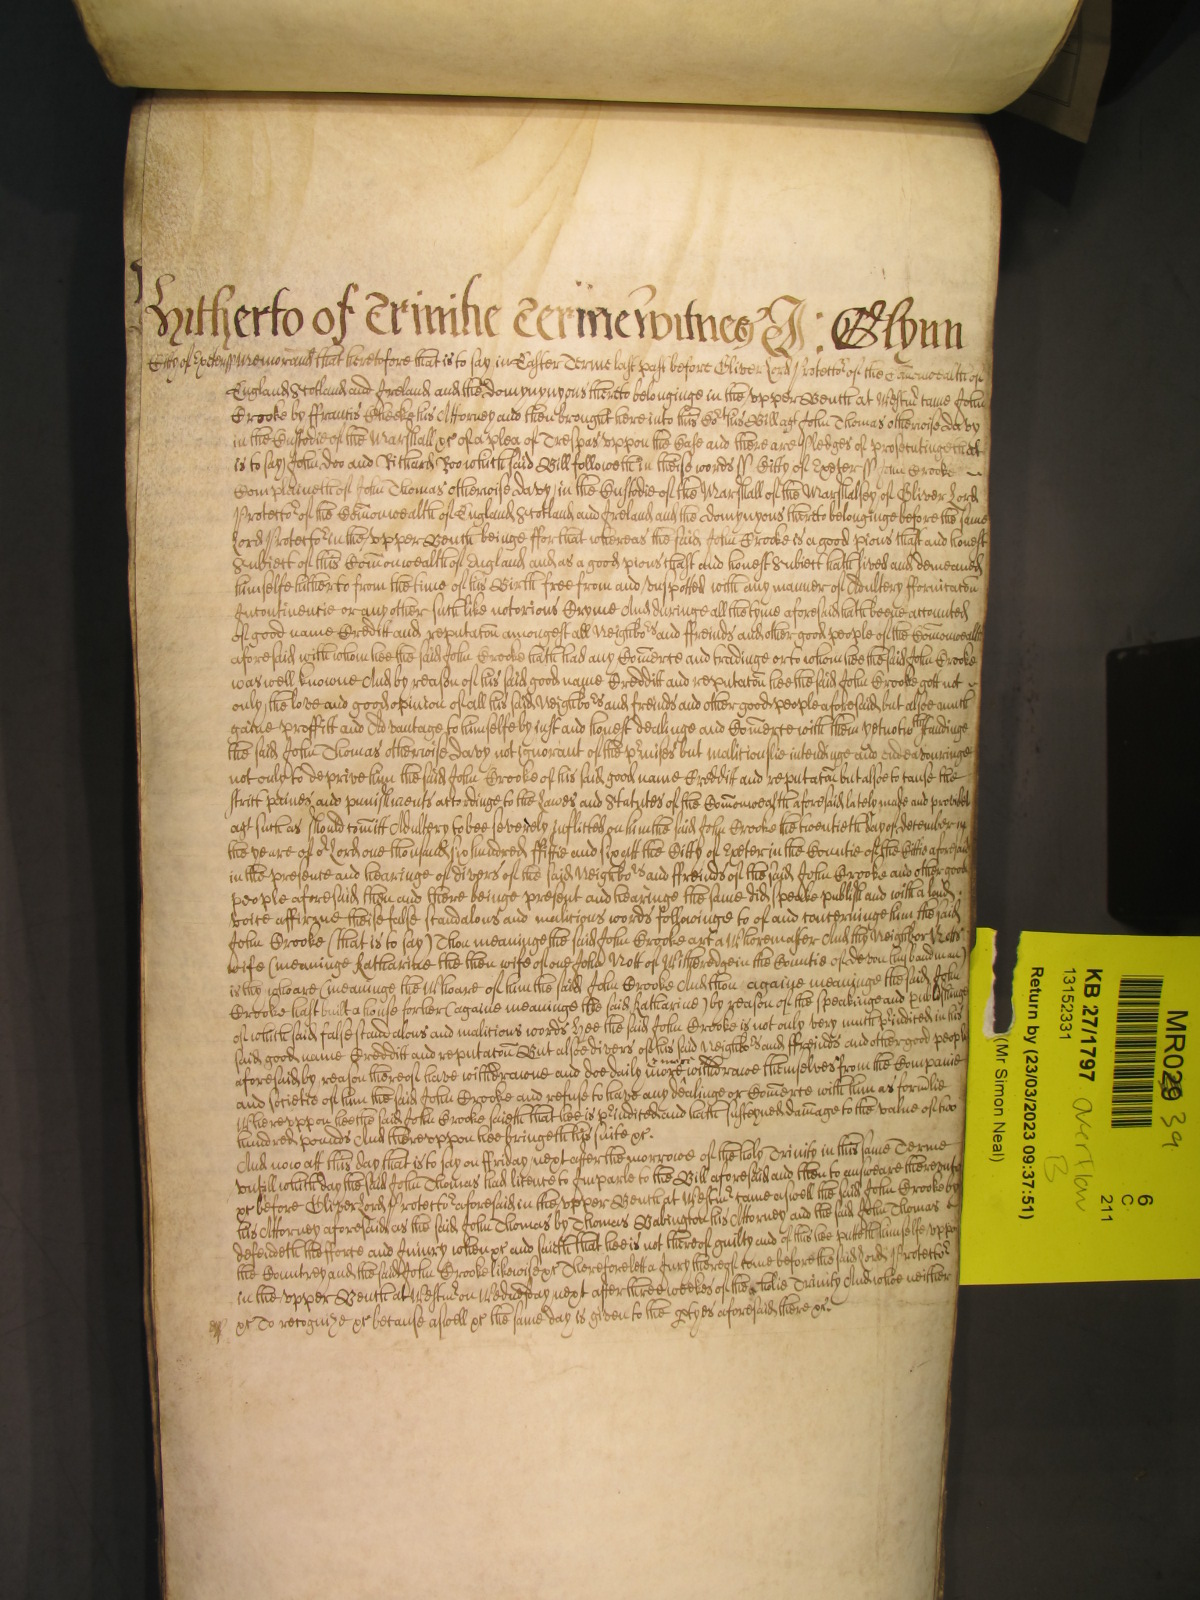 Hitherto of Trinitie Terme witnes J: Glynn
Citty of Exeter ss Memorand that heretofore that is to say in Easter Terme last past before Oliver Lord Protector of the Comonwealth of
England Scotland and Ireland and the domynyons thereto belonginge in the upper Bench at Westmr came John
Crooke by ffrancis his Attorney and then brought here into this Cort his Bill agt John Thomas otherwise Davy
in the Custodie of the Marshall &c of a plea of Trespas uppon the Case and there are Pledges of prosecutinge that
is to say John Doo and Richard Roo which said Bill followeth in theise words ss Citty of Exeter ss John Crooke
Complaineth of John Thomas otherwise Davy in the Custodie of the Marshall of the Marshalsey of Oliver Lord
Protector of the Comonwealth of England Scotland and Ireland and the domynyons thereto belonginge before the same
Lord Protector in the upper Bench beinge ffor that whereas the said John Crooke is a good pious chast and honest
Subiect of this Comonwealth of England and as a good pious chast and honest Subiect hath lived and demeaned
himselfe hitherto from the time of his Birth free from and unspotted with any manner of Adultery ffornicacon
Incontinencie or any other such like notorious Cryme And duringe all the tyme aforesaid hath beene accounted
of good name Creditt and reputacon amongest all Neighbors and ffreinds and other good people of the Comonwealth
aforesaid with whom hee the said John Crooke hath had any Comerce and tradinge or to whom hee the said John Crooke
was well knowne And by reason of his said good name Credditt and reputacon hee the said John Crooke gott not
only the love and good opinion of all his said Neighbors and freinds and other good people aforesaid but alsoe much
gaine proffitt and Advantage to himselfe by iust and honest dealinge and Comerce with them yet notwthstandinge
the said John Thomas otherwise Davy not ignorant of the prmises but malitiouslie intendinge and endeavouringe
not only to deprive him the said John Crooke of his said good name Credditt and reputacon but alsoe to cause the
strict paines and punishments accordinge to the Lawes and Statutes of the Comonwealth aforesaid lately made and provided
agt such as should comitt Adultery to bee severely inflicted on him the said John Crooke the twentieth day of december in
the yeare of or Lord one thousand six hundred ffiftie and six att the Citty of Exeter in the Countie of the Cittie aforesaid
in the presence and hearinge of divers of the said Neighbors and ffreinds of the said John Crooke and other good
people aforesaid then and there beinge present and hearinge the same did speake publish and with a loud
voice affirme theise false scandalous and malitious words followinge to of and concerninge him the said
John Crooke (that is to say) Thou meaninge the said John Crooke art a Whoremaster And thy Neighbor Notts
wife (meaninge Katharine the then wife of one John Nott of Witheredge in the Countie of devon husbandman)
is thy whoare (meaninge the Whoare of him the said John Crooke And thou (againe meaninge the said John
Crooke hast built a house for her (againe meaninge the said Katharine) by reason of the speakinge and publishinge
of which said false scandalous and malitious words hee the said John Crooke is not only very much priudiced in his
said good name Credditt and reputacon But alsoe divers of his said Neighbors and ffreinds and other good people
aforesaid by reason thereof have withdrawne and doe daily more & more withdrawe themselves from the Companie
and Societie of him the said John Crooke and refuse to have any dealinge or Comerce with him as formerlie
Whereuppon hee the said John Crooke saieth that hee is priudiced and hath susteyned damage to the value of two
hundred pounds And thereuppon hee bringeth his suite &c.
And now att this day that is to say on ffriday next after the morrowe of the holy Trinity in this same Terme
untill which day the said John Thomas had licence to Imparle to the Bill aforesaid and then to answeare thereunto
&c before Oliver Lord Protector aforesaid in the upper Bench at Westmr came aswell the said John Crooke by
his Attorney aforesaid as the said John Thomas by Thomas Babington his Attorney and the said John Thomas
defendeth the fforce and Iniury when &c and saieth that hee is not thereof guilty and of this hee putteth himselfe uppon
the Countrey and the said John Crooke likewise &c Therefore lett a Jury thereof come before the said Lord Protector
in the upper Bench at Westmr on Wednesday next after three weekes of the holie Trinity And whoe neither
&c To recognize &c because aswell &c the same day is given to the ptyes aforesaid there &c.
MR029 39
6
C
211
KB 27/1797
13152331
Return by (23/03/2023 09:37:51)
(Mr Simon Neal)
overton
B